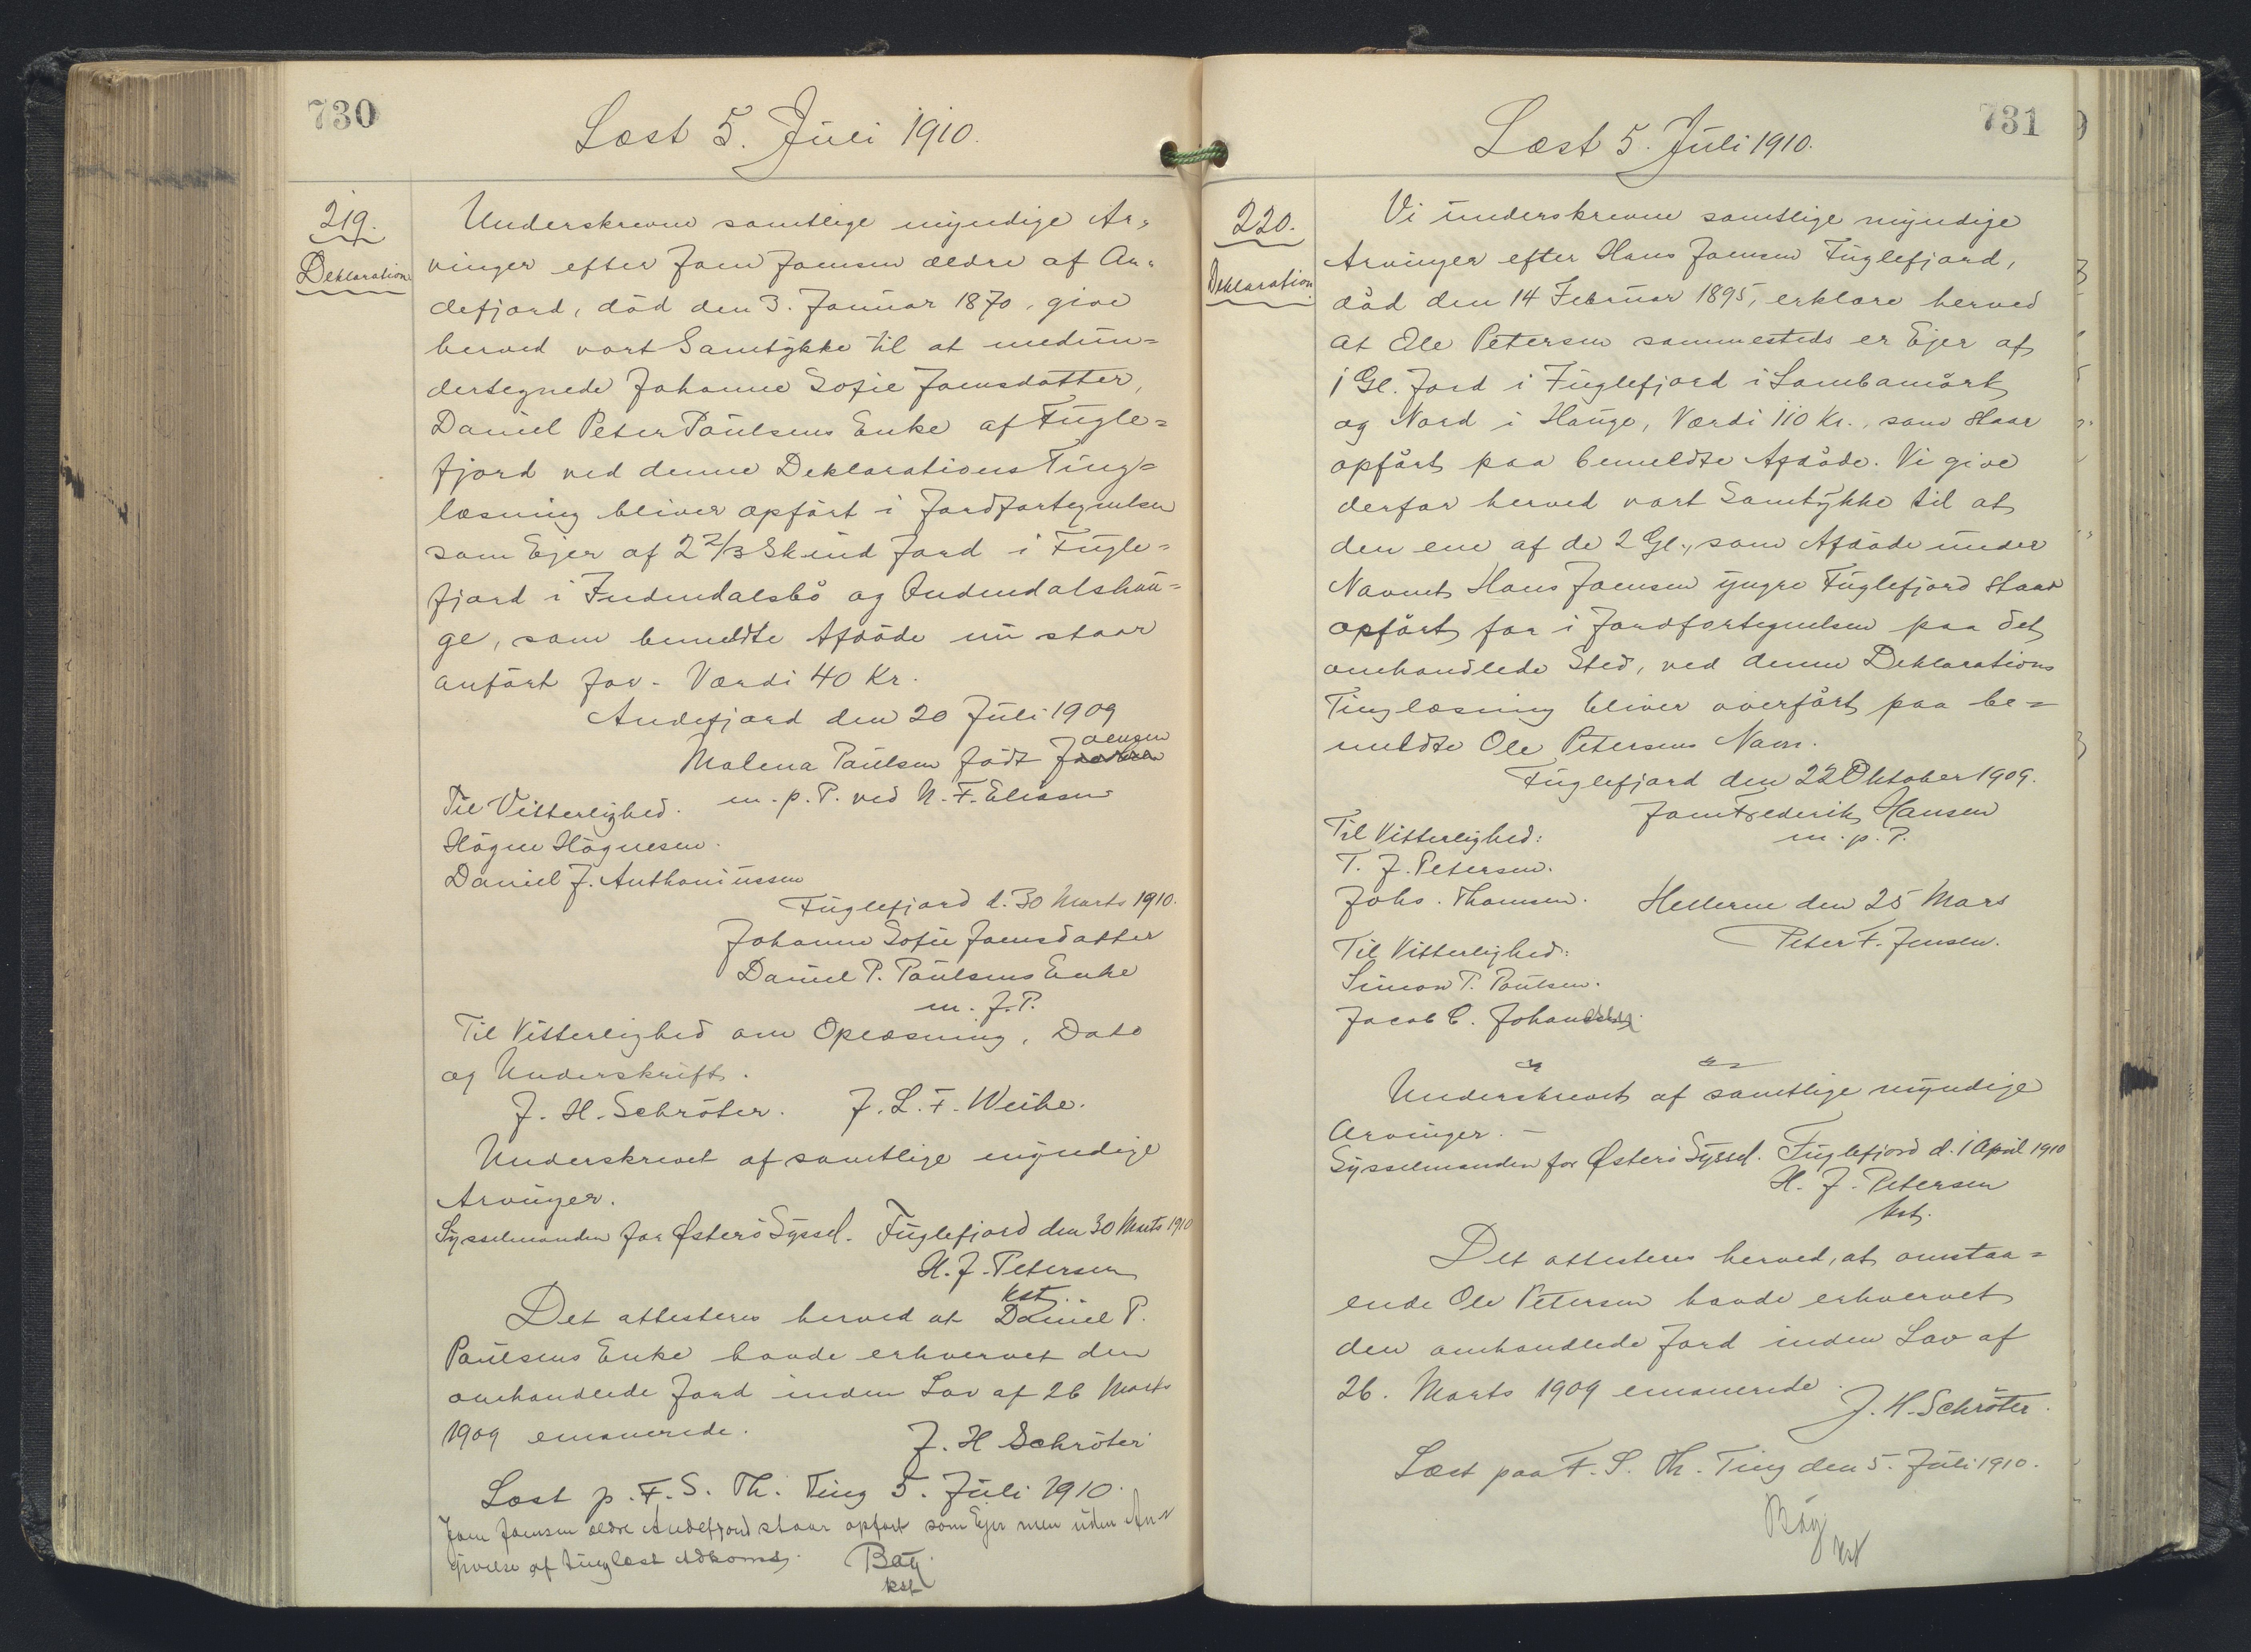 730
Læst 5. Juli 1910.
219.
Deklaration
Underskrevne samtlige myndige Ar=
vinger efter Joen Joensen ældre af An=
defjord, död den 3. Januar 1870, give
herved vort Samtykke til at medun=
dertegnede Johanne Sofie Joensdatter,
Daniel Peter Poulsens Enke af Fugle=
fjord ved denne Deklarations Ting=
læsning bliver opfört i Jordfortegnelsen
som Ejer af 2 2/3 Skind Jord i Fugle=
fjord i Indendalsbö og Indendalshau=
ge, som bemeldte Afdöde nu staar
anfört for. Værdi 40 Kr.
Andefjord den 20 Juli 1909
Malena Poulsen födt Joensen
m. p. P. ved N. F. Eliasen
Til Vitterlighed.
Högne Högnesen.
Daniel J. Anthoniussen
Fuglefjord d. 30 Marts 1910.
Johanne Sofie Joensdatter
Daniel P. Poulsens Enke
m. f. P.
Til Vitterlighed om Oplæsning, Dato
og Underskrift.
J. H. Schröter. J. L. F. Weihe.
Underskrevet af samtlige myndige
Arvinger.
Sysselmanden for Østerö Syssel. Fuglefjord den 30 Marts 1910
H. J. Petersen
kst.
Det attesteres herved at Daniel P.
Poulsens Enke havde erhvervet den
omhandlede Jord inden Lov af 26 Marts
1909 emanerede.
J. H Schröter
Læst p. F. S. Th. Ting 5. Juli 1910.
Joen Joensen ældre Andefjord staar opfört som Ejer men uden An=
givelse af tinglæst Adkomst.
Bøg
kst
731
Læst 5. Juli 1910.
220.
Deklaration
Vi underskrevne samtlige myndige
Arvinger efter Hans Joensen Fuglefjord,
död den 14 Februar 1895, erklære herved
at Ole Petersen sammesteds er Ejer af
1 Gl. Jord i Fuglefjord i Lambamört
og Nord i Hauge, Værdi 110 Kr., som staar
opfört paa bemeldte Afdöde. Vi give
derfor herved vort Samtykke til at
den ene af de 2 Gl., som Afdöde under
Navnet Hans Joensen yngre Fuglefjord staar
opfört for i Jordfortegnelsen paa det
omhandlede Sted, ved denne Deklarations
Tinglæsning bliver overfört paa be=
meldte Ole Petersens Navn.
Fuglefjord den 22 Oktober 1909.
Joen Frederik Hansen
m. p. P.
Til Vitterlighed:
T. J. Petersen.
Johs. Thomsen.
Hellerne den 25 Mars
Peter F. Jensen.
Til Vitterlighed:
Simon P. Poulsen.
Jacob C. Johansen
Underskrevet af samtlige myndige
Arvinger. —
Sysselmanden for Østerö Syssel. Fuglefjord d. 1 April 1910
H. J. Petersen
kst.
Det attesteres herved, at omstaa=
ende Ole Petersen havde erhvervet
den omhandlede Jord inden Lov af
26. Marts 1909 emanerede.
J. H. Schröter.
Læst paa F. S. Th. Ting den 5. Juli 1910.
Bøg
kst